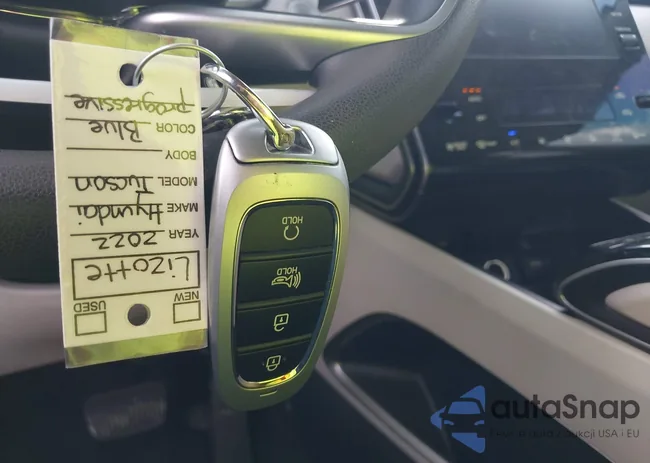 NEW USED
Lizotte
YEAR 2022
MAKE Hyundai
MODEL Tucson
BODY
COLOR Blue
progressive
HOLD
HOLD
autaSnap
USA i EU